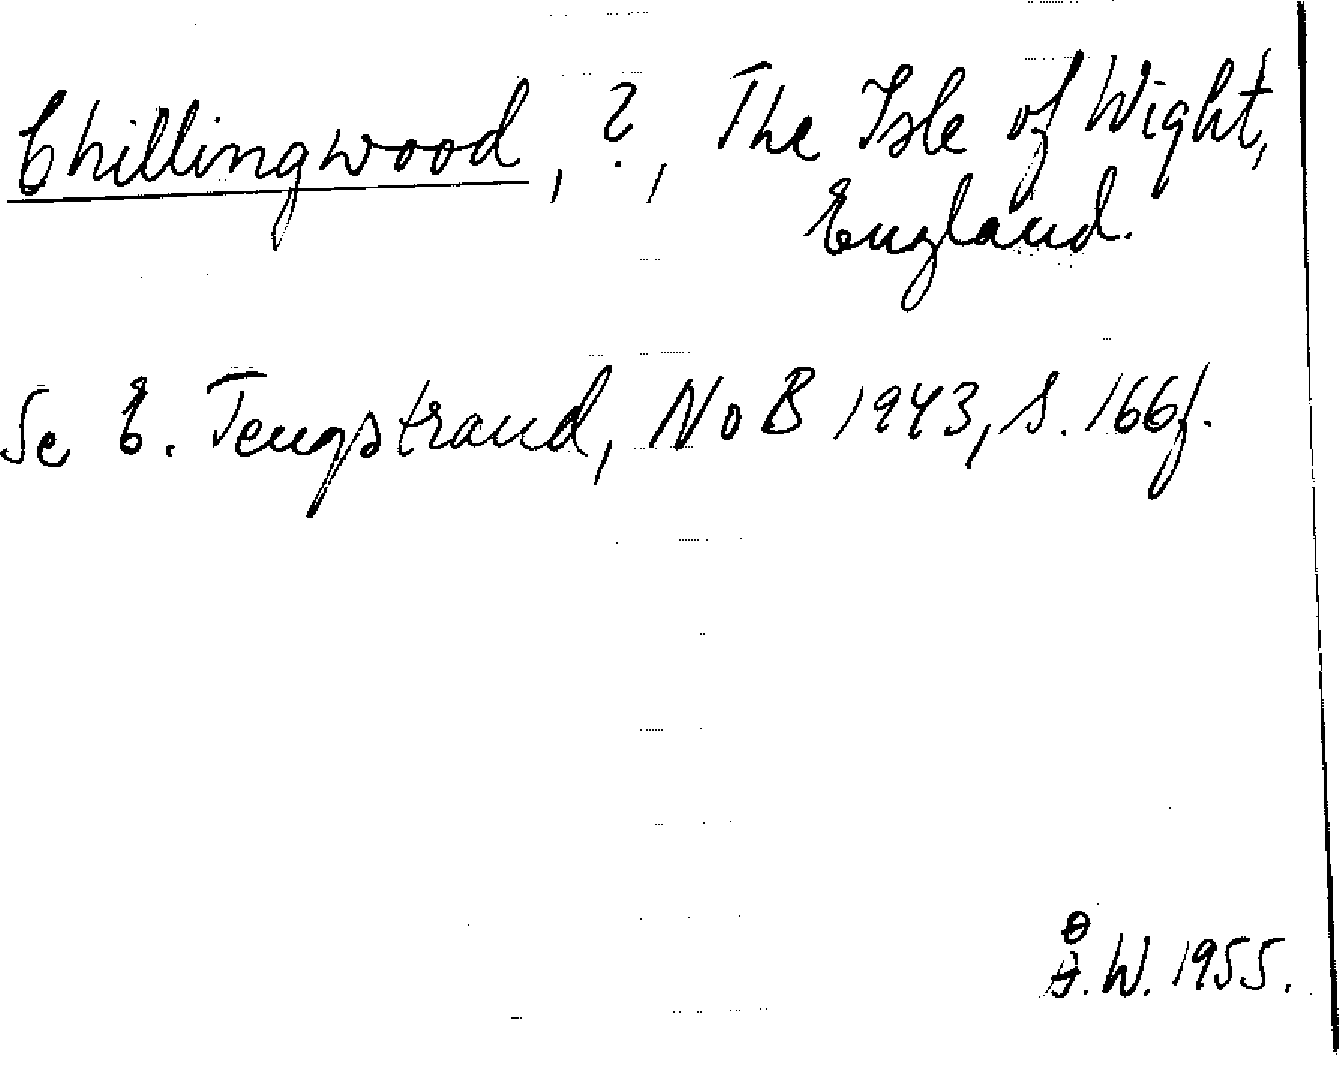 Chillingwood, ?, The Isle of Wight,
England.
Se E. Tengstrand, NoB 1943, s. 166f.
Å.W. 1955.